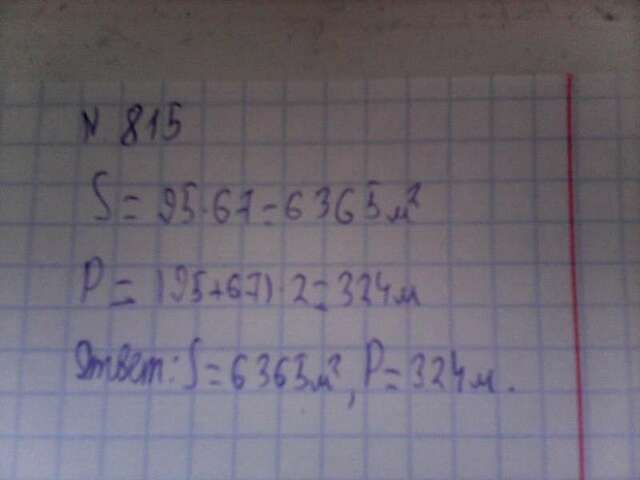 N 815
S = 95·67 = 6365 м²
P = (95+67)·2 = 324 м
Ответ: S = 6365 м², P = 324 м.